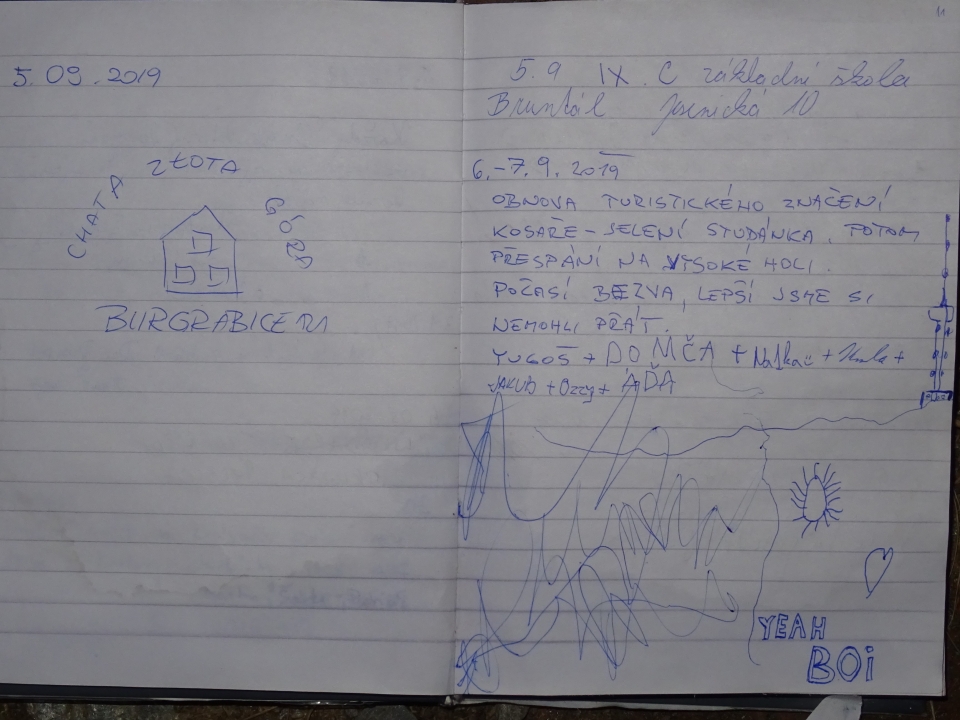 5.09.2019
CHATA ZŁOTA GÓRA
BURGRABICE
11
5.9 IX. C základní škola
Bruntál Jesenická 10
6.-7.9.2019
OBNOVA TURISTICKÉHO ZNAČENÍ
KOSAŘE-JELENÍ STUDÁNKA. POTOM
PŘESPÁNÍ NA VYSOKÉ HOLI.
POČASÍ BEZVA, LEPŠÍ JSME SI
NEMOHLI PŘÁT.
YUGOŠ + DOMČA + +
JAKUB + Ozzy + ÁĎA
YEAH
BOi